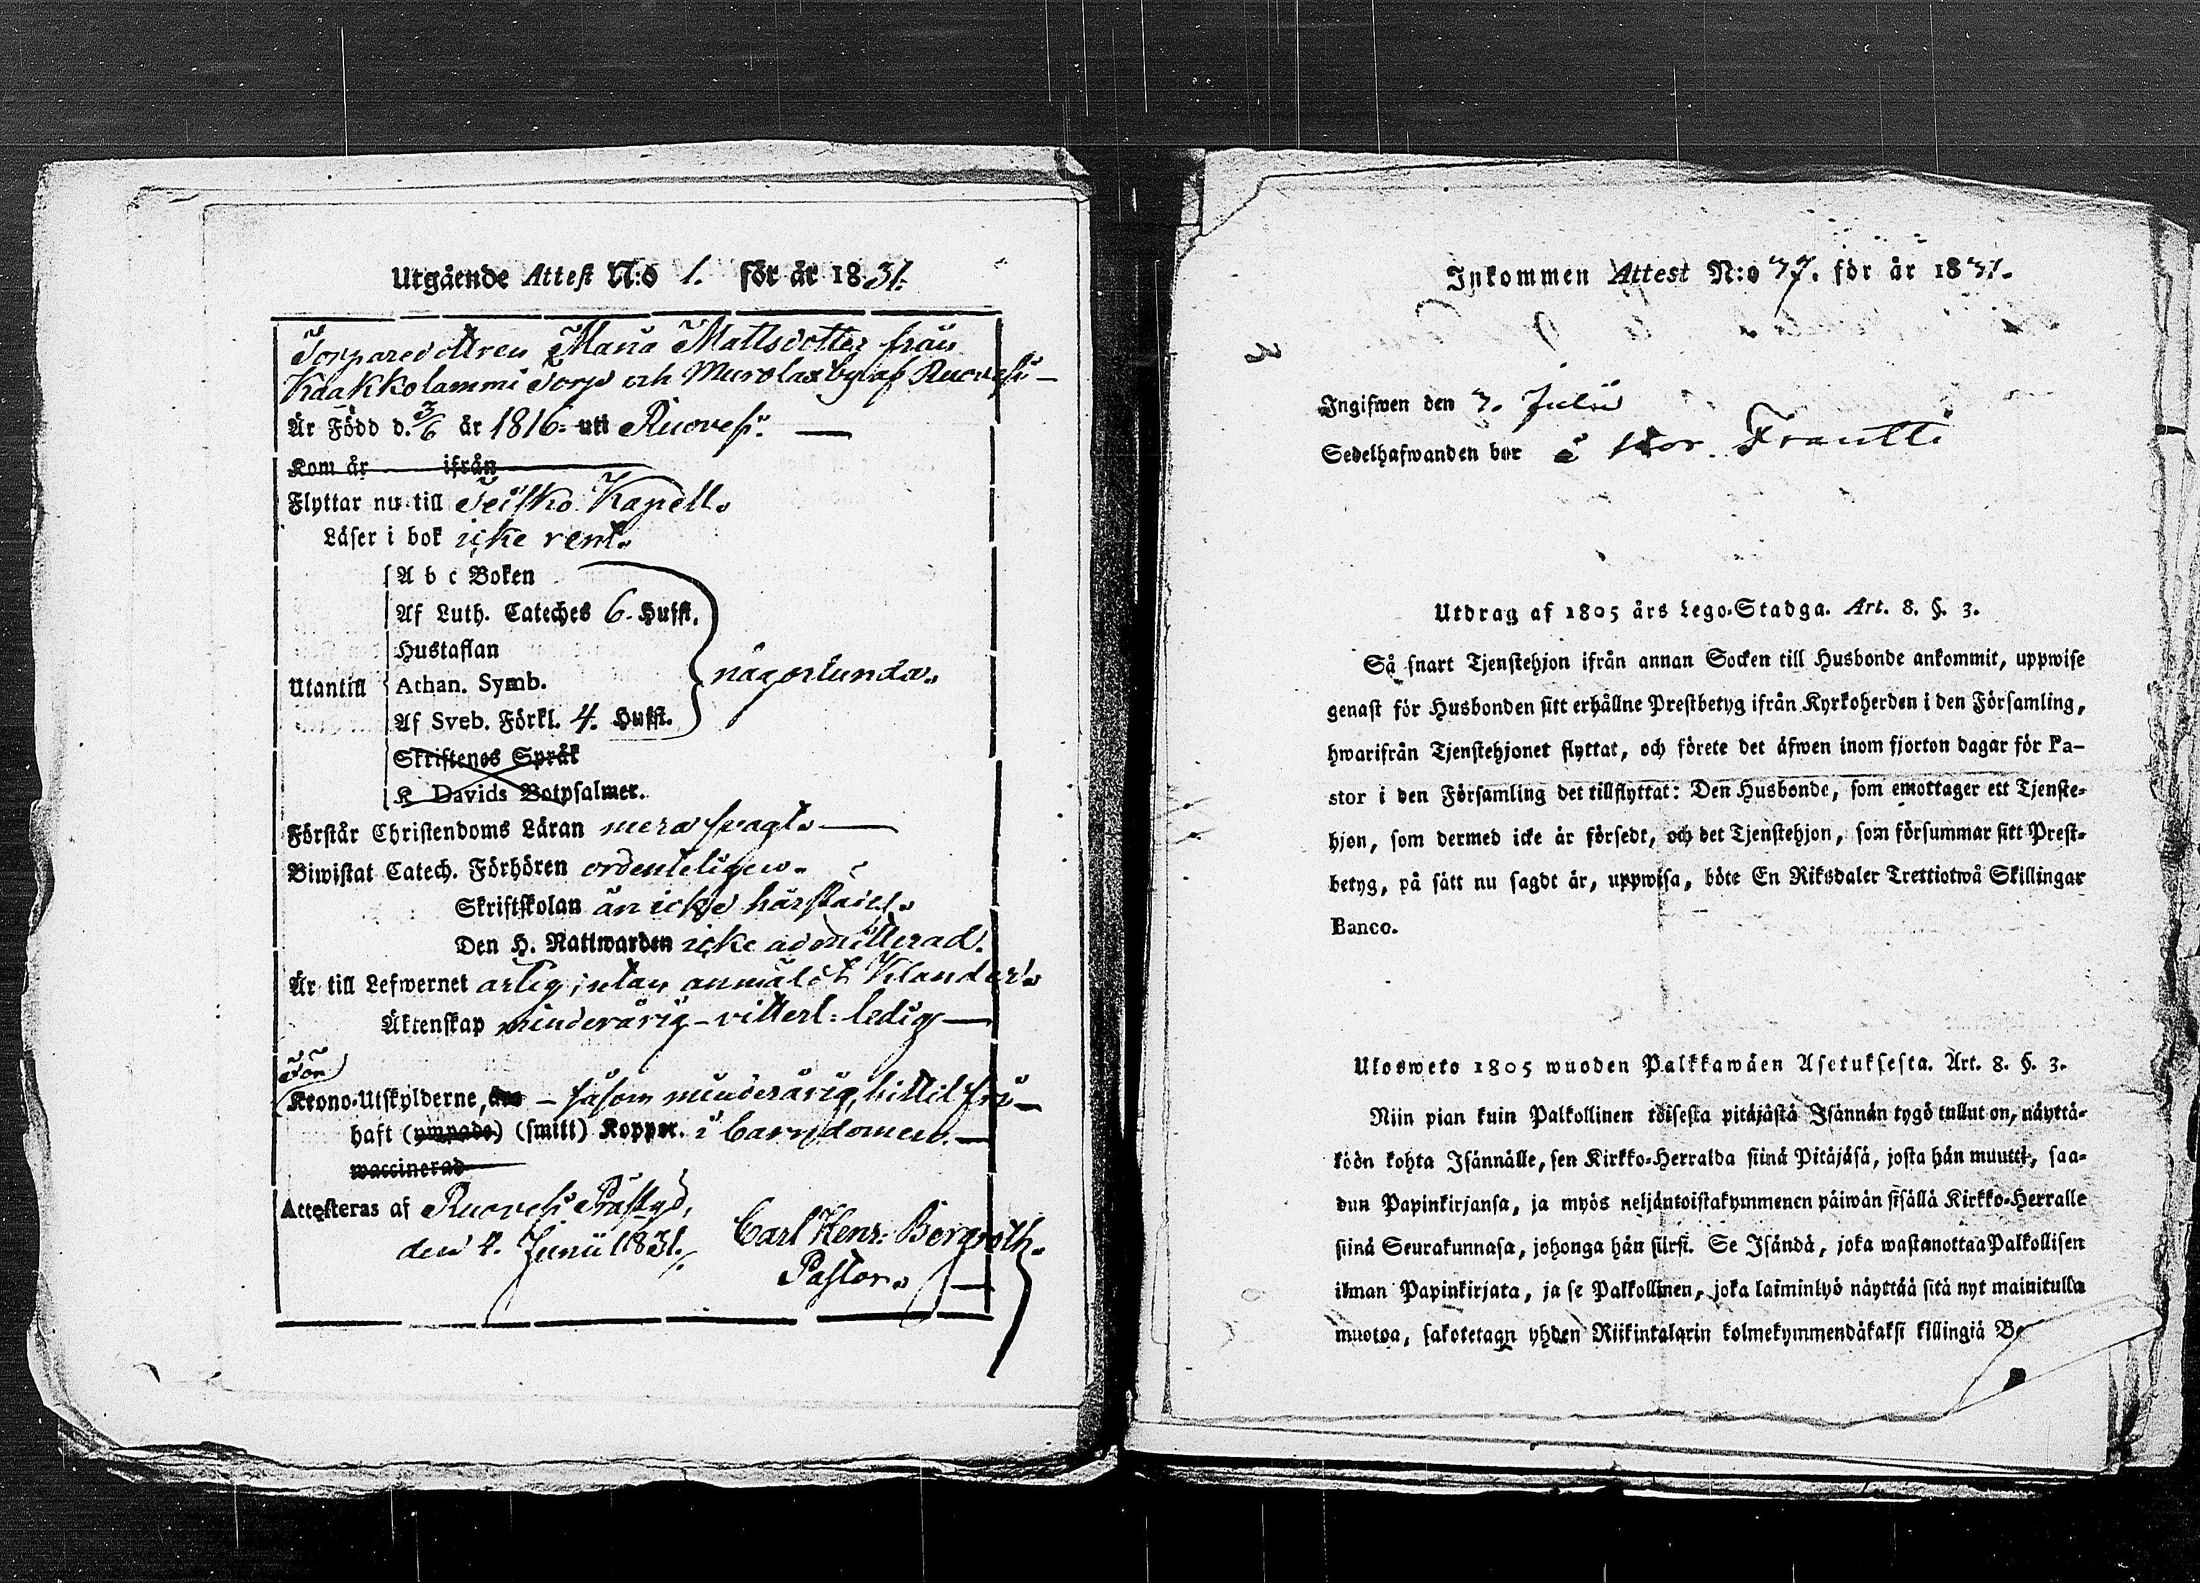 Utgående Attest N:o 1. för år 1831.
Torparedottren Maria Mattsdotter från
Kaakkolammi Torp och Murolax by af Ruovesi
Är Född d. 3/6 år 1816. uti Ruovesi.
Kom år ifrån
Flyttar nu till Teisko Kapell.
Läser i bok icke rent.
A b c Boken
Af Luth. Cateches 6. Hufst.
Hustaflan
Utantill Athan. Symb. någorlunda.
Af Sveb. Förkl. 4. Hufst.
Skriftenes Språk
K Davids Botpsalmer.
Förstår Christendoms Läran mera svagt.
Biwistat Catech. Förhören ordenteligen.
Skriftskolan än icke
Den H. Nattwarden icke admitterad.
Är till Lefwernet artig, utan anmäldt Klander.
Äktenskap minderårig - vitterl: ledig
För
Krono-Utskylderne, såsom minderårig, hittil fri
haft (ympade) (smitt) Koppor. i barndomen.
waccinerad
Attesteras af Ruovesi Prästgd,
den 4. Junii 1831. Carl Henr: Bergroth.
Pastor.
Inkommen Attest N:o 37. för år 1831.
Ingifwen den 3. Julii
Sedelhafwanden bor å Stor Frantti
Utdrag af 1805 års Lego-Stadga. Art. 8. §. 3.
Så snart Tjenstehjon ifrån annan Socken till Husbonde ankommit, uppwise
genast för Husbonden sitt erhållne Prestbetyg ifrån Kyrkoherden i den Församling,
hwarifrån Tjenstehjonet flyttat, och förete det äfwen inom fjorton dagar för Pa-
stor i den Församling det tillflyttat: Den Husbonde, som emottager ett Tjenste-
hjon, som dermed icke är försedt, och det Tjenstehjon, som försummar sitt Prest-
betyg, på sätt nu sagdt är, uppwisa, böte En Riksdaler Trettiotwå Skillingar
Banco.
Ulosweto 1805 wuoden Palkkawäen Asetuksesta. Art. 8. §. 3.
Niin pian kuin Palkollinen toisesta pitäjästä Isännän tygö tullut on, näyttä-
köön kohta Isännälle, sen Kirkko-Herralda siinä Pitäjäsä, josta hän muutti, saa-
dun Papinkirjansa, ja myös neljäntoistakymmenen päiwän sisällä Kirkko-Herralle
siinä Seurakunnasa, johonga hän siirsi. Se Isändä, joka wastanottaa Palkollisen
ilman Papinkirjata, ja se Palkollinen, joka laiminlyö näyttää sitä nyt mainitulla
muotoa, sakotetaan yhden Riikintalarin kolmekymmendäkaksi killingiä